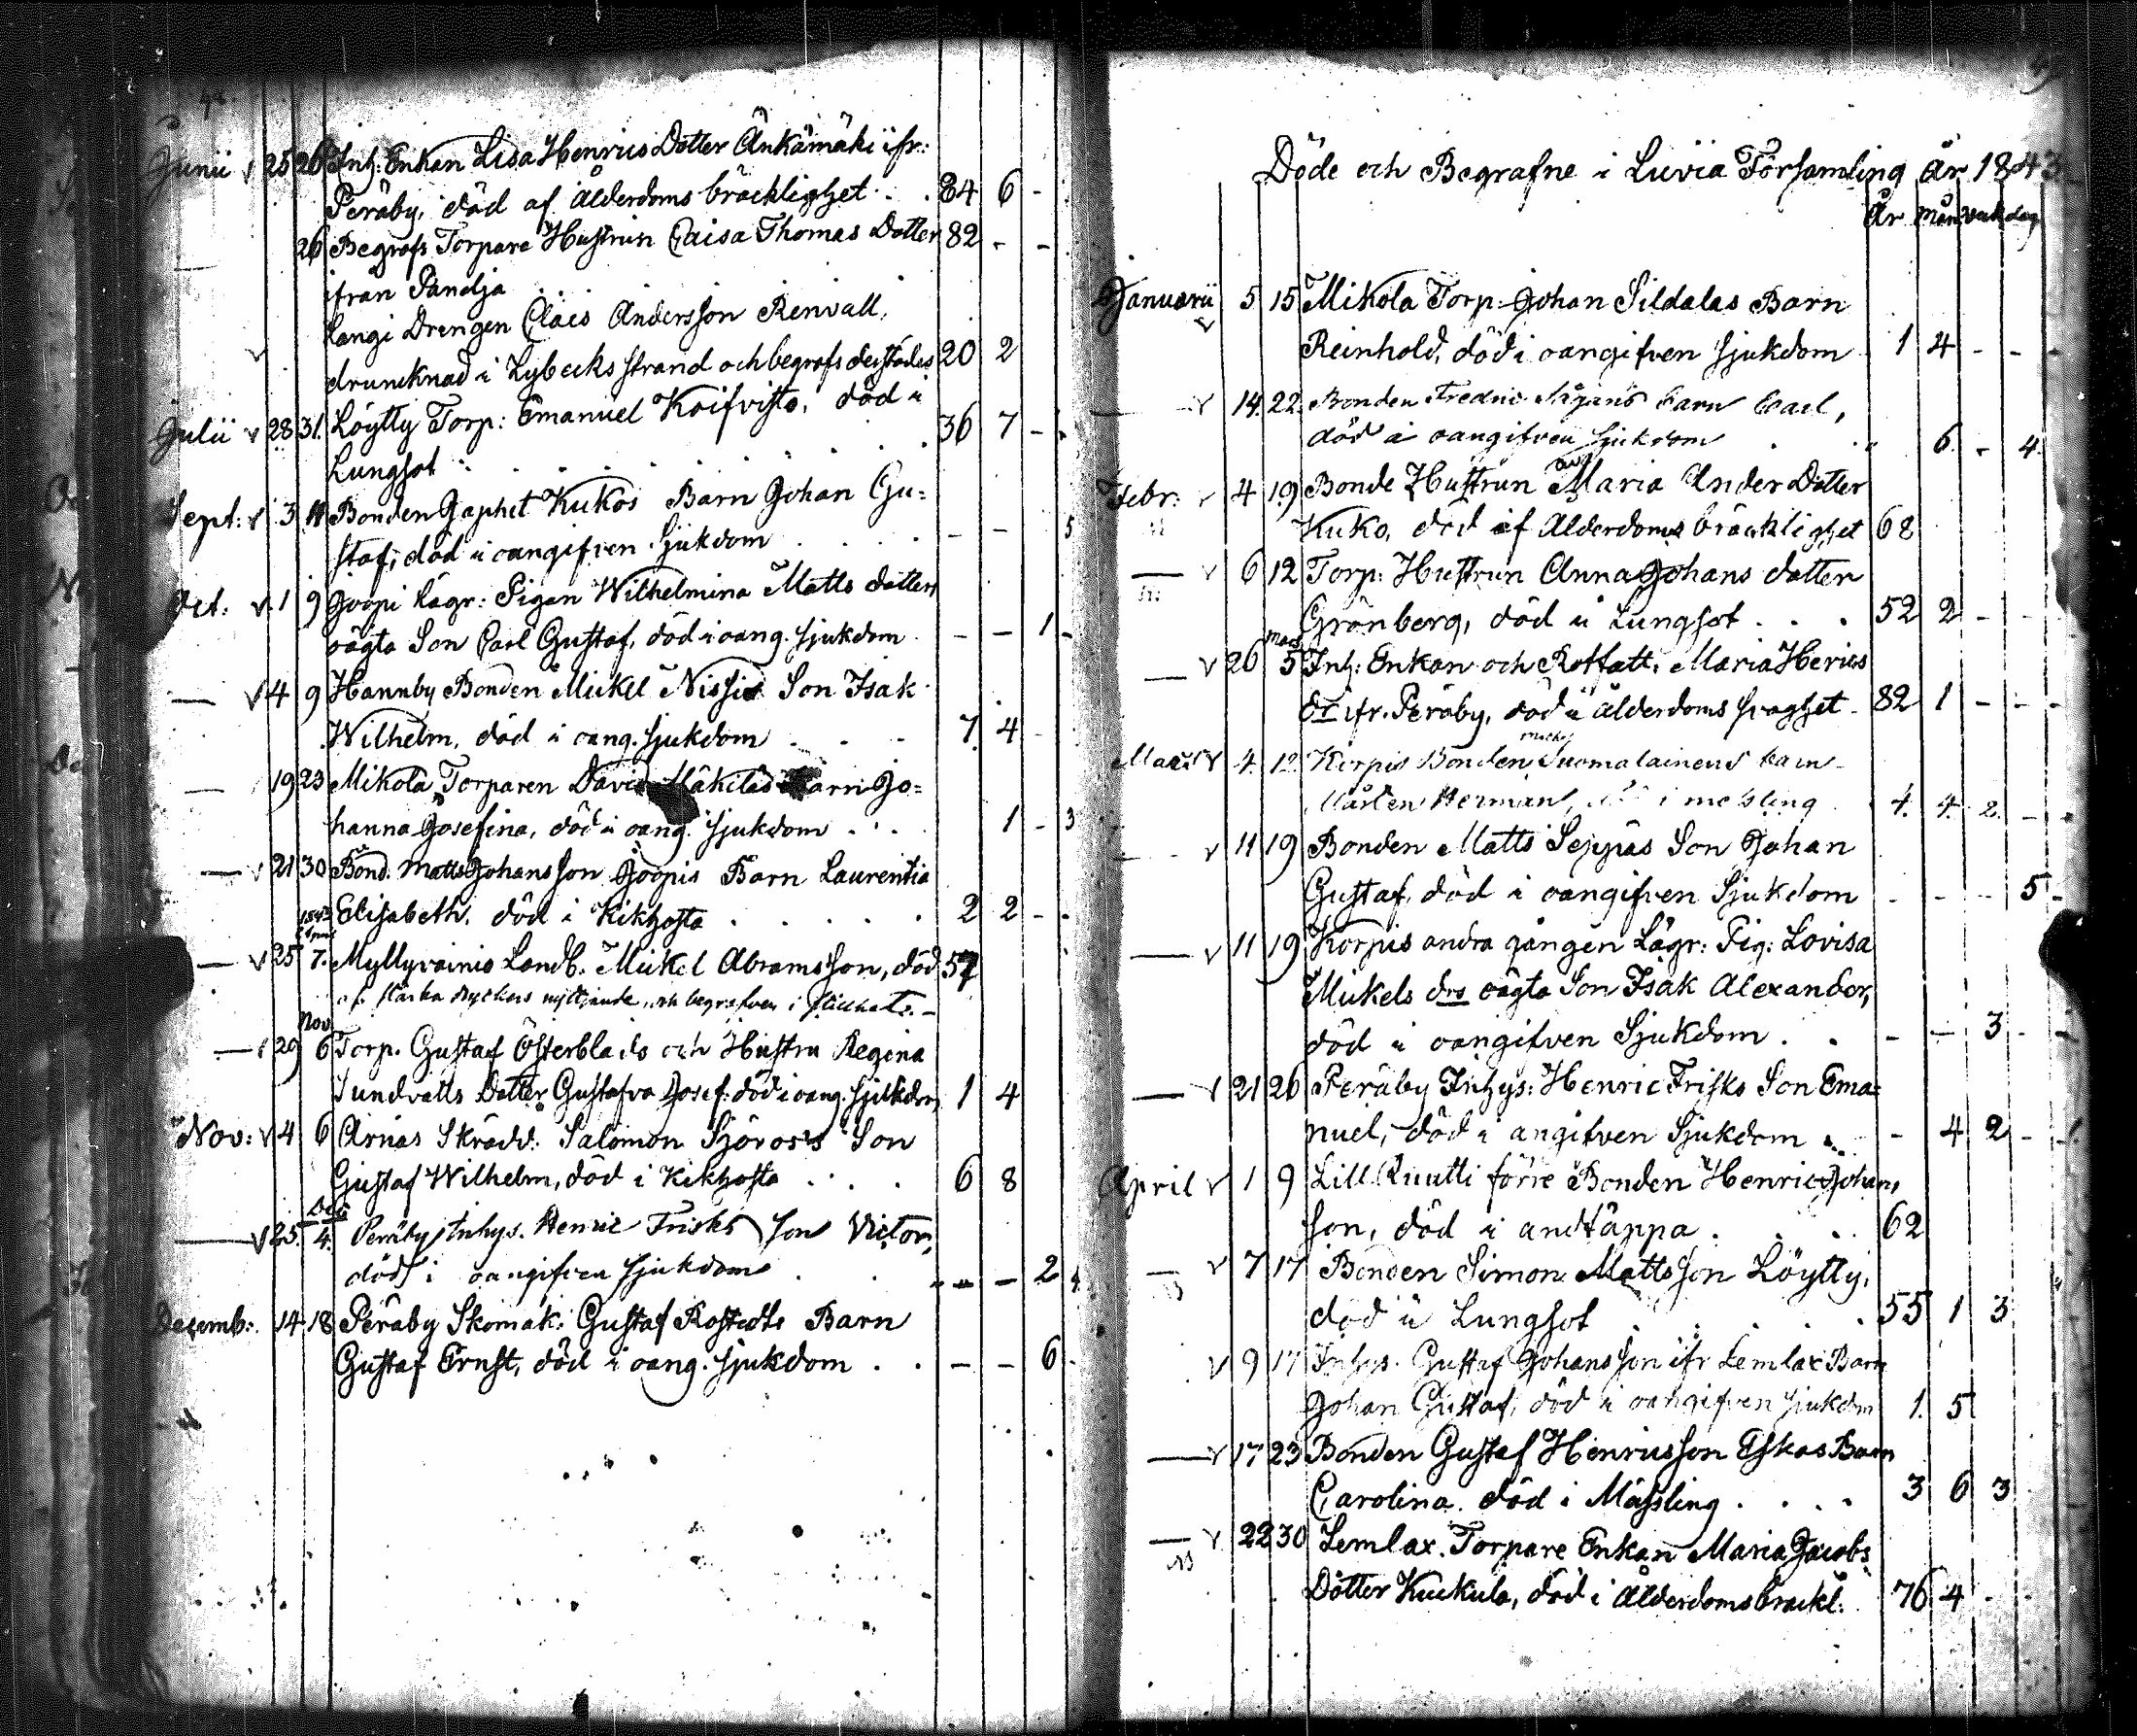 48.
Junii v 25 26 Inh: Enkan Lisa Henrics Dotter Änkämäki ifr:
Peräby, död af Ålderdoms bräcklighet . . 84 6 -
26 Begrofs Torpare Hustrun Caisa Thomas Dotter 82 - -
ifrån Pandja
Langi Drengen Claes Andersson Renvall,
v drunknad i Lybecks strand och begrafs derstädes 20 2
Julii v 28 31. Löytty Torp: Emanuel Koifvisto, död i
Lungsot . . . . . . . . 36 7 - .
Sept: v 3 11 Bonden Japhet Kukos Barn Johan Gu=
staf, död i oangifven Sjukdom . . . . - - 5
Oct: v 1 9 Joopi Lägr: Pigan Wilhelmina Matts dotters
oägta Son Carl Gustaf, död i oang. sjukdom . - - 1 -
— v 4 9 Hannby Bonden Mickel Nissis Son Isak
Wilhelm, död i oang. sjukdom . . - 7. 4 -
— 19 23 Mikola Torparen David Mäkiläs Barn Jo=
hanna Josefina, död i oang. sjukdom . . . 1 - 3
— v 21 30 Bond. Matts Johansson Joopis Barn Laurentia
Elisabeth, död i Kikhosta . . . . . 2 2 - -
1843
— v 25 7. Myllyvainio Landb. Mickel Abramsson, död 57
af starka dryckers nyttjande och begrafven i stillhet. -
Nov
— v 29 6 Torp. Gustaf Österblads och Hustru Regina
Sundvalls Dotter Gustafva Josef: död i oang. sjukdom 1 4
Nov: v 4 6 Arnas Skrädd: Salomon Sjöros's Son
Gustaf Wilhelm, död i Kikhosta . . . . 6 8
Dec
— v 25. 4. Peräby Inhys. Henric Frisks son Victor,
död i oangifven sjukdom . . - - - 2
Decemb: 14 18 Peräby Skomak: Gustaf Rostedts Barn
Gustaf Ernst, död i oang. sjukdom . . - - 6 .
49
Döde och Begrafne i Luvia Församling År 1843
År Mån Veck dag
Januarii v 5 15 Mikola Torp: Johan Sildalas Barn
Reinhold, död i oangifven sjukdom . 1 4 - - -
— v 14. 22. Bonden Fredric Sågans barn Carl,
död i oangifven sjukdom . . " 6. - 4.
Febr: v 4 19 Bonde Hustrun Maria Anders Dotter
Kuko, död af Ålderdoms bräcklighet 68
— v 6 12 Torp: Hustrun Anna Johans dotter
Grönberg, död i Lungsot . . . 52 2 - - -
Mars
— v 26 5 Inh: Enkan och Rotfatt: Maria Henrics
dr ifr. Peräby, död i ålderdoms svaghet - 82 1 - - -
Mars v 4. 12. Korpis Bonden Suomalainens barn
Mårten Herman, död i mesling . 4. 4. 2. - -
— v 11 19 Bonden Matts Seppäs Son Johan
Gustaf, död i oangifven Sjukdom - - - 5 -
— v 11 19 Korpis andra gången Lägr: Pig: Lovisa
Mickels drs oägta Son Isak Alexander,
död i oangifven Sjukdom . . - - 3 - -
— v 21 26 Peräby Inhys: Henric Frisks Son Ema=
nuel, död i angifven Sjukdom . . - 4 2 - -
April v 1 9 Lill Ruutti förre Bonden Henric Johans
son, död i andtäppa . . . 62
— v 7 17 Bonden Simon Mattsson Löytty,
död i Lungsot . . . . . 55 1 3
v 9 17 Inhys. Gustaf Johansson ifr Lemlax Barn
Johan Gustaf, död i oangifven sjukdom 1. 5
— v 17 23 Bonden Gustaf Henricsson Eskos Barn
Carolina, död i Mässling . . . . 3 6 3
— v 22 30 Lemlax. Torpare Enkan Maria Jacobs
Dotter Kuckula, död i Ålderdoms bräckl: . 76 4 - -